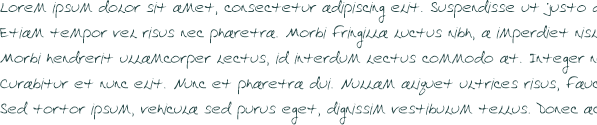 Lorem ipsum dolor sit amet, consectetur adipiscing elit. Suspendisse ut justo a
Etiam tempor vel risus nec pharetra. Morbi fringilla luctus nibh, a imperdiet nisl
Morbi hendrerit ullamcorper lectus, id interdum lectus commodo at. Integer n
Curabitur et nunc elit. Nunc et pharetra dui. Nullam aliquet ultrices risus, fauc
Sed tortor ipsum, vehicula sed purus eget, dignissim vestibulum tellus. Donec ac